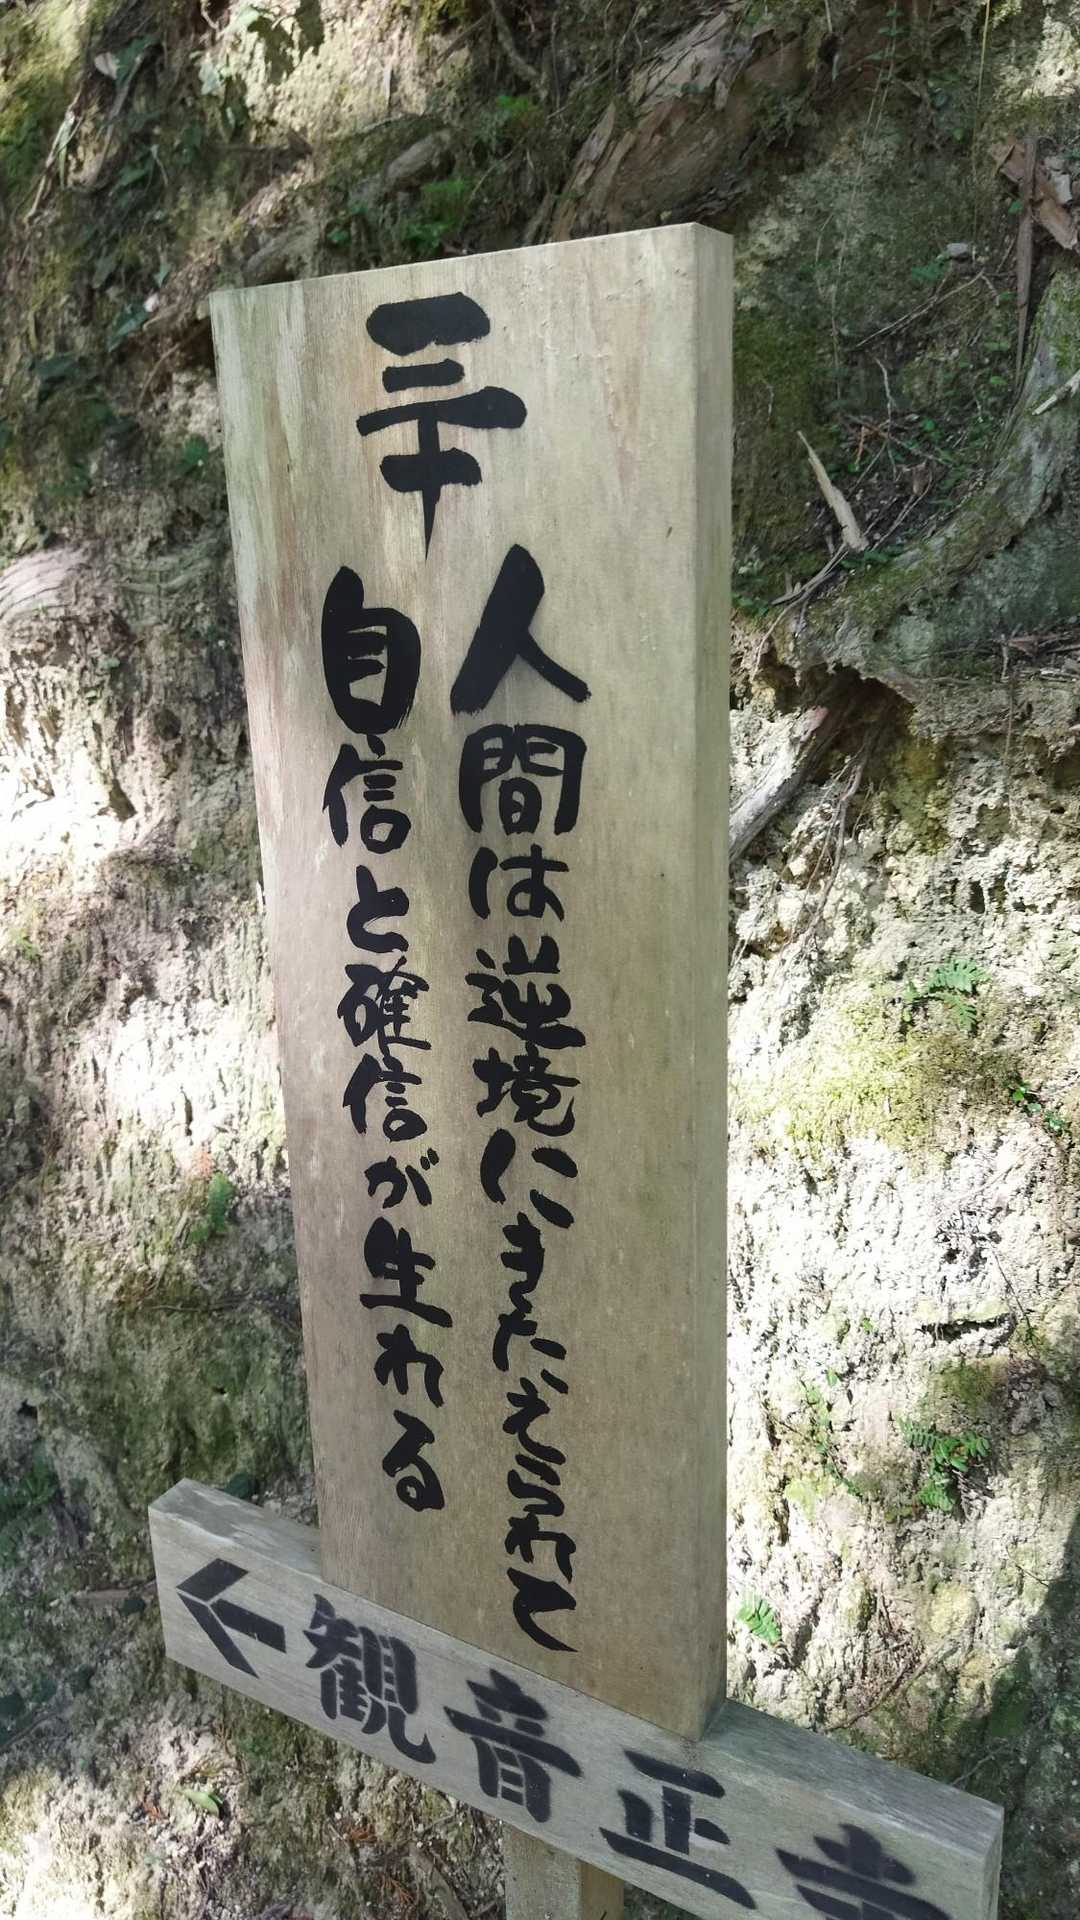 三十
人間は逆境にきたえられて
自信と確信が生れる
←観音正寺